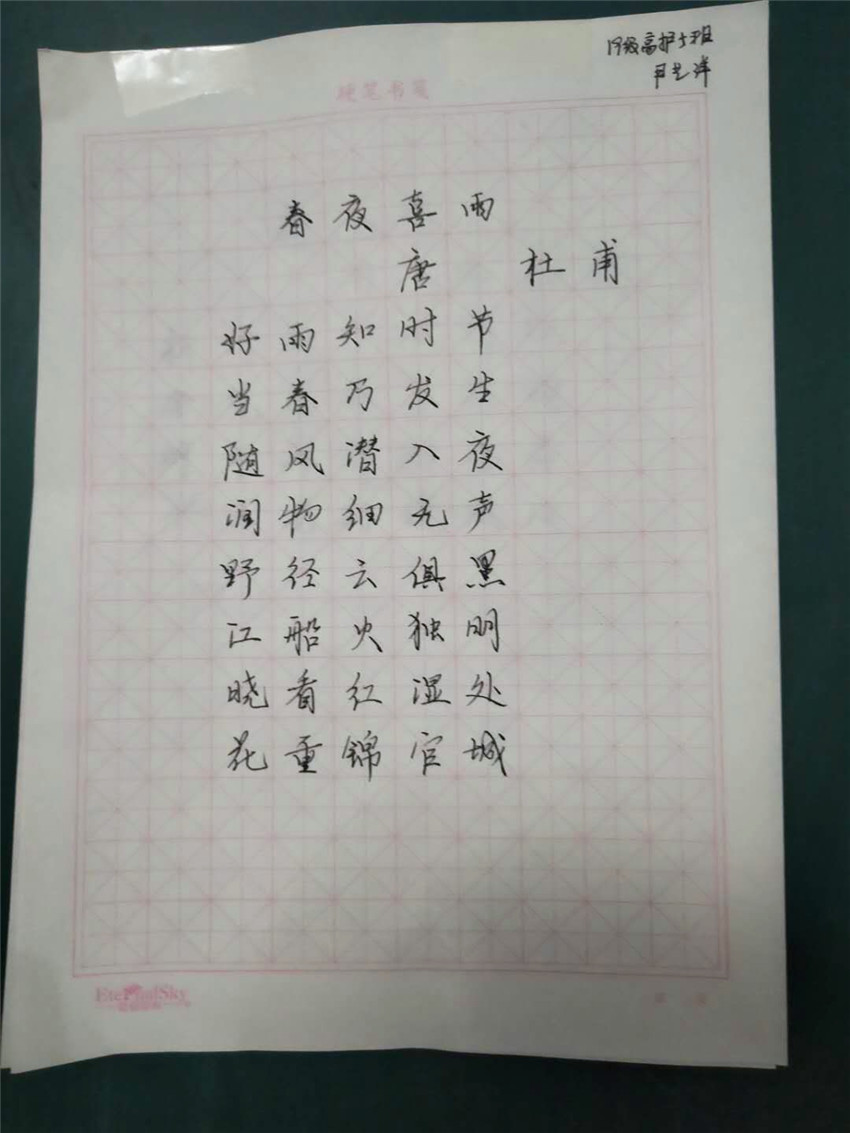 19级高护5班
尹艺洋
硬笔书笺
春夜喜雨
唐 杜甫
好雨知时节
当春乃发生
随风潜入夜
润物细无声
野径云俱黑
江船火独明
晓看红湿处
花重锦官城
EternalSky